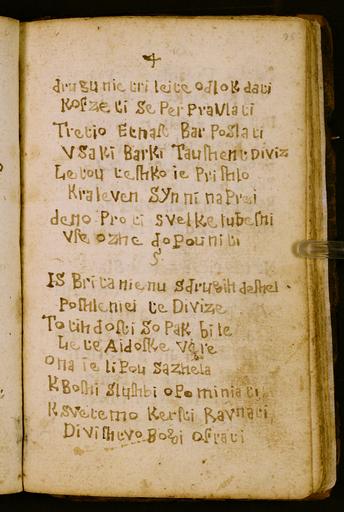 drugu nie tri leite odlok dati
Kos ze ti Se Per Pravlati
Tretio Etnast Bar Poslati
V Saki Barki Taushent Diviz
Letou teshko ie Prishlo
Kraleven Syn ni na Prei
deno Proti svelke lubesni
Vse ozhe doPouniti
IS Britanie nu sdrugih deshel
Poshleniei te Divize
Totih dosti So Pak bile
Le te Aidoske Vere
Ona ie liPou Sazhela
K Boshi Slushbi oPominiati
K svetemo Kersti Ravnati
Divishtvo Bogi ofrati